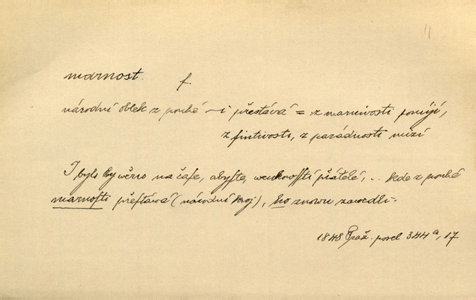 marnost f.
národní oblek z pouhé –i přestává = z marnivosti pomíjí,
z fintivosti, z parádnosti mizí
I bylo by věru na čase, abyste, wenkowští přátelé, .. kde z pouhé
marnosti přestává (národní kroj), ho znowu zawedli.
1848 Praž. posel 344ᵃ, 17